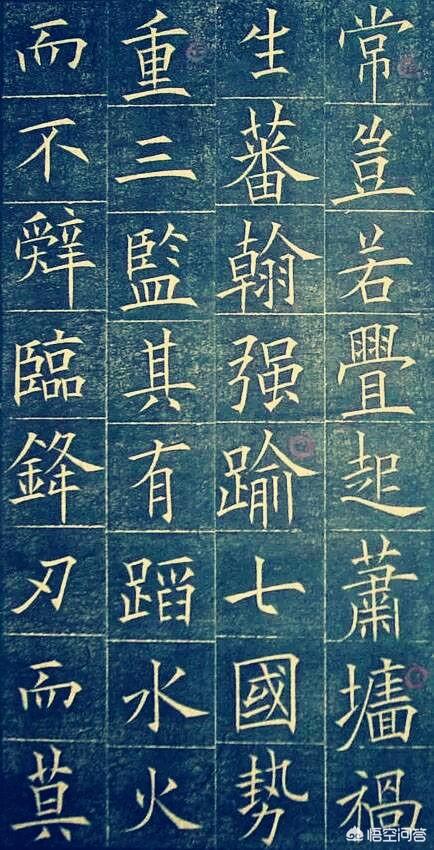 常豈若舋起蕭墻禍
生蕃翰强踰七國勢
重三監其有蹈水火
而不辭臨鋒刃而莫
悟空问答